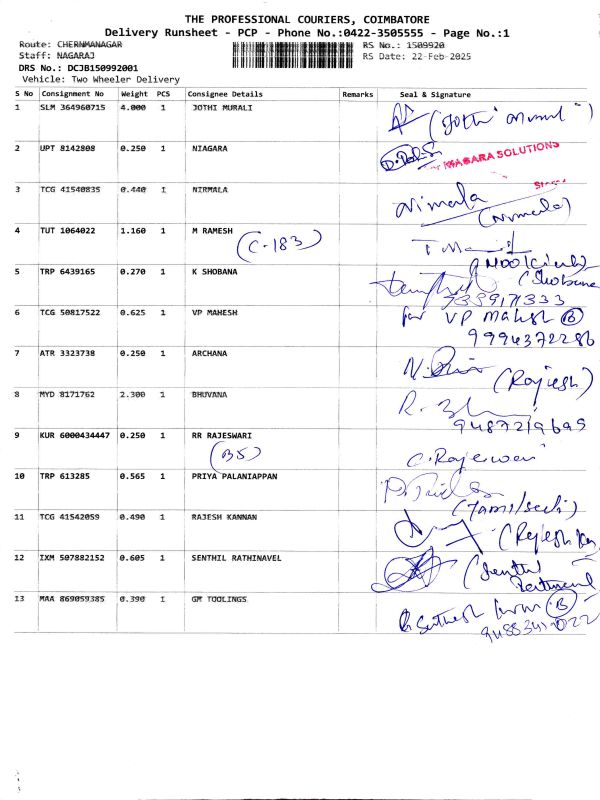 THE PROFESSIONAL COURIERS, COIMBATORE
Delivery Runsheet - PCP - Phone No.:0422-3505555 - Page No.:1
Route: CHERNMANAGAR
RS No.: 1509920
Staff: NAGARAJ
RS Date: 22-Feb-2025
DRS No.: DCJB150992001
Vehicle: Two Wheeler Delivery
S No Consignment No Weight PCS Consignee Details Remarks Seal & Signature
1 SLM 364960715 4.000 1 JOTHI MURALI
2 UPT 8142808 0.250 1 NIAGARA
SOLUTIONS
3 TCG 41540835 0.440 1 NIRMALA
Nimala
4 TUT 1064022 1.160 1 M RAMESH
(C-183)
5 TRP 6439165 0.270 1 K SHOBANA
(Shobana
6 TCG 50817522 0.625 1 VP MAHESH
for VP Mahesh (B)
9994372286
7 ATR 3323738 0.250 1 ARCHANA
(Rajesh)
8 MYD 8171762 2.300 1 BHUVANA
9487219695
9 KUR 6000434447 0.250 1 RR RAJESWARI
(B5)
10 TRP 613285 0.565 1 PRIYA PALANIAPPAN
11 TCG 41542059 0.490 1 RAJESH KANNAN
12 IXM 507882152 0.605 1 SENTHIL RATHINAVEL
13 MAA 869059385 0.390 1 GM TOOLINGS